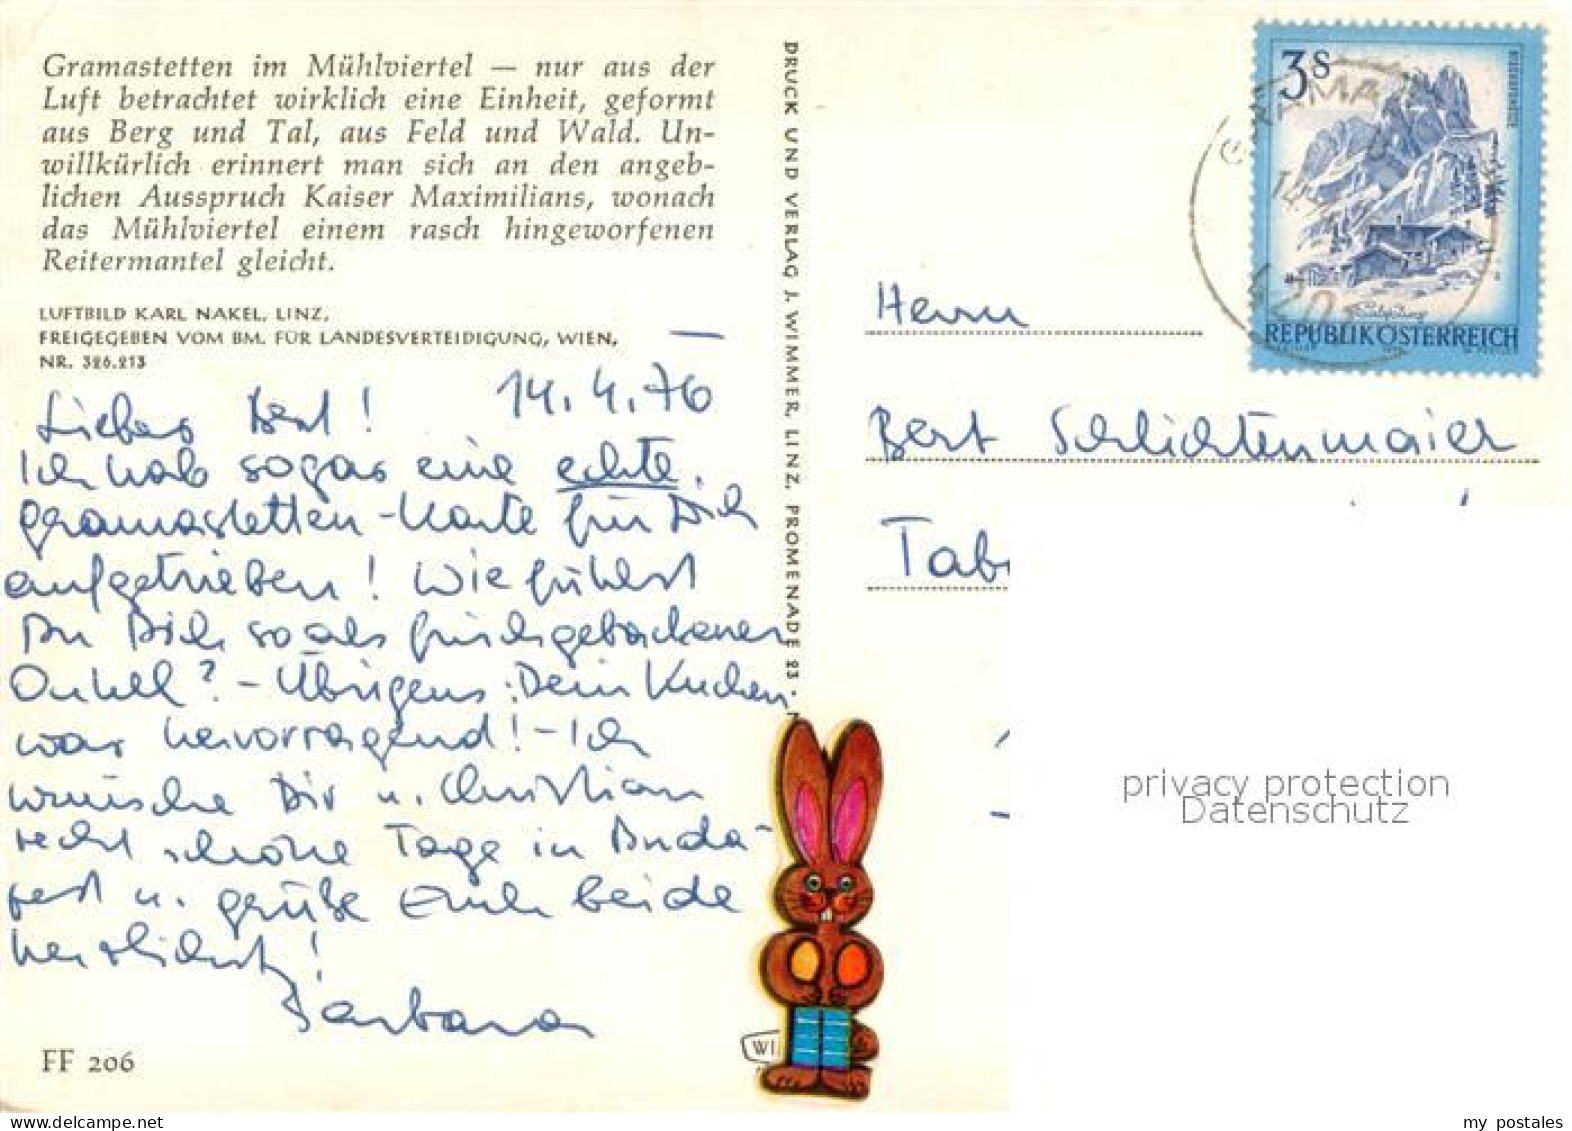 Gramastetten im Mühlviertel — nur aus der
Luft betrachtet wirklich eine Einheit, geformt
aus Berg und Tal, aus Feld und Wald. Un-
willkürlich erinnert man sich an den angeb-
lichen Ausspruch Kaiser Maximilians, wonach
das Mühlviertel einem rasch hingeworfenen
Reitermantel gleicht.
LUFTBILD KARL NAKEL, LINZ,
FREIGEGEBEN VOM BM. FÜR LANDESVERTEIDIGUNG, WIEN,
NR. 326.213
14.4.76
Lieber Bert!
Ich hab sogar eine echte
Gramastetten-Karte für Dich
aufgetrieben! Wie fühlst
Du Dich so als frischgebackener
Onkel? - Übrigens: Dein Kuchen
war hervorragend! - Ich
wünsche Dir u. Christian
recht schöne Tage in Buda-
pest u. grüße Euch beide
herzlichst!
Barbara
FF 206
DRUCK UND VERLAG J. WIMMER, LINZ, PROMENADE 23 ·
WI
3S
REPUBLIK ÖSTERREICH
Herrn
Bert Schlichtenmaier
Tab
privacy protection
Datenschutz
my postales